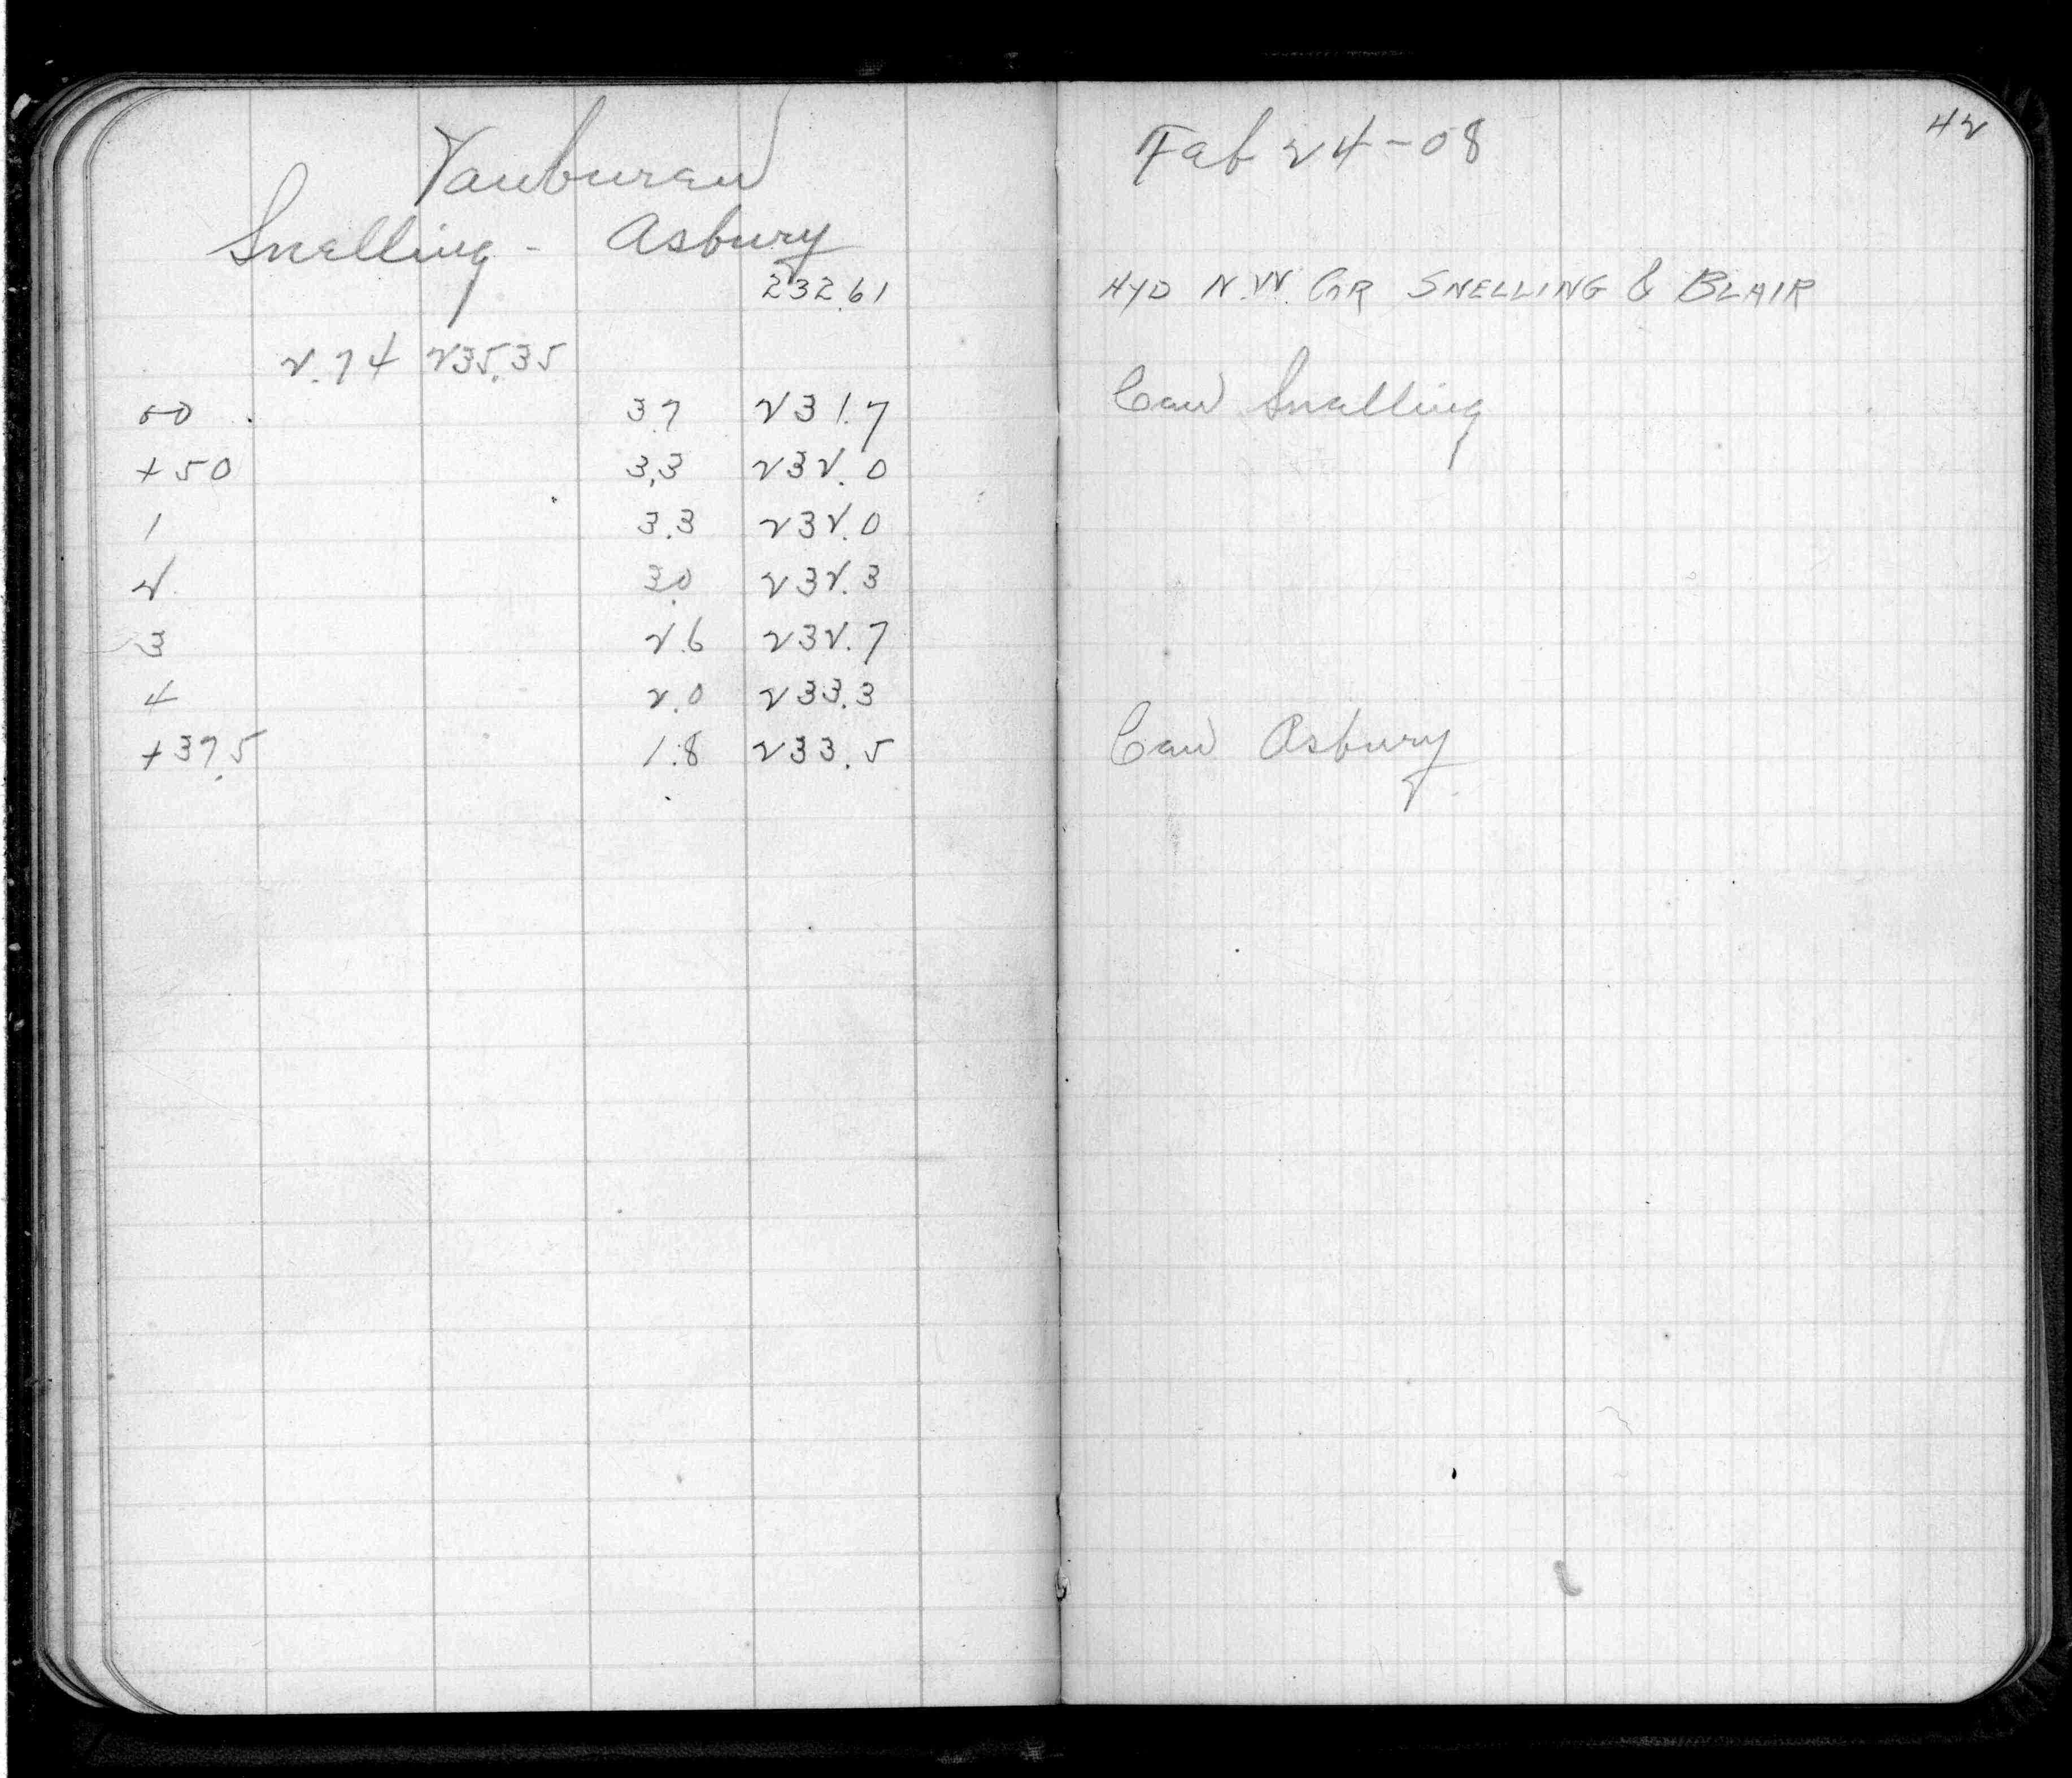 Vanburen
Snelling - Asbury
232.61
2.74 235.35
00 3.7 231.7
+50 3.3 232.0
1 3.3 232.0
2 3.0 232.3
3 2.6 232.7
4 2.0 233.3
+37.5 1.8 233.5
42
Feb 24-08
HYD N.W. COR SNELLING & BLAIR
Cen Snelling
Cen Asbury